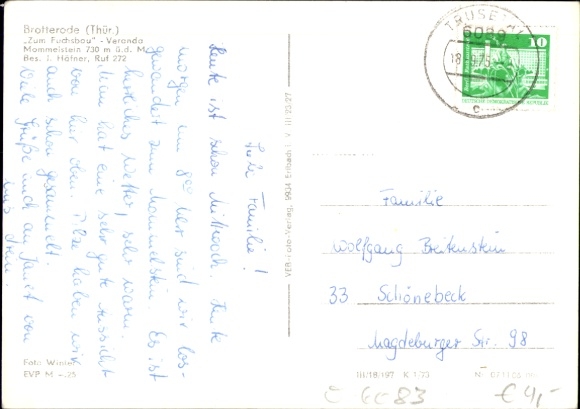 Brotterode (Thür.)
„Zum Fuchsbau" - Veranda
Mommelstein 730 m ü.d. M
Bes. I. Häfner, Ruf 272
Liebe Familie!
Heute ist schon Mittwoch. Heute
morgen um 8 sind wir los-
gewandert zum Mommelstein. Es ist
herrliches Wetter, sehr warm.
Man hat eine sehr gute Aussicht
von hier oben. Pilze haben wir
auch schon gesammelt.
Viele Grüße auch an Janet von
uns
Foto Winter
EVP M -.25
VEB Foto-Verlag, 9934 Erlbach i. V. III/23/27
TRUSETAL
6089
10
DEUTSCHE DEMOKRATISCHE REPUBLIK
c
Familie
Wolfgang Breitenstein
33 Schönebeck
Magdeburger Str. 98
III/18/197 K 1/73
€ 4,-